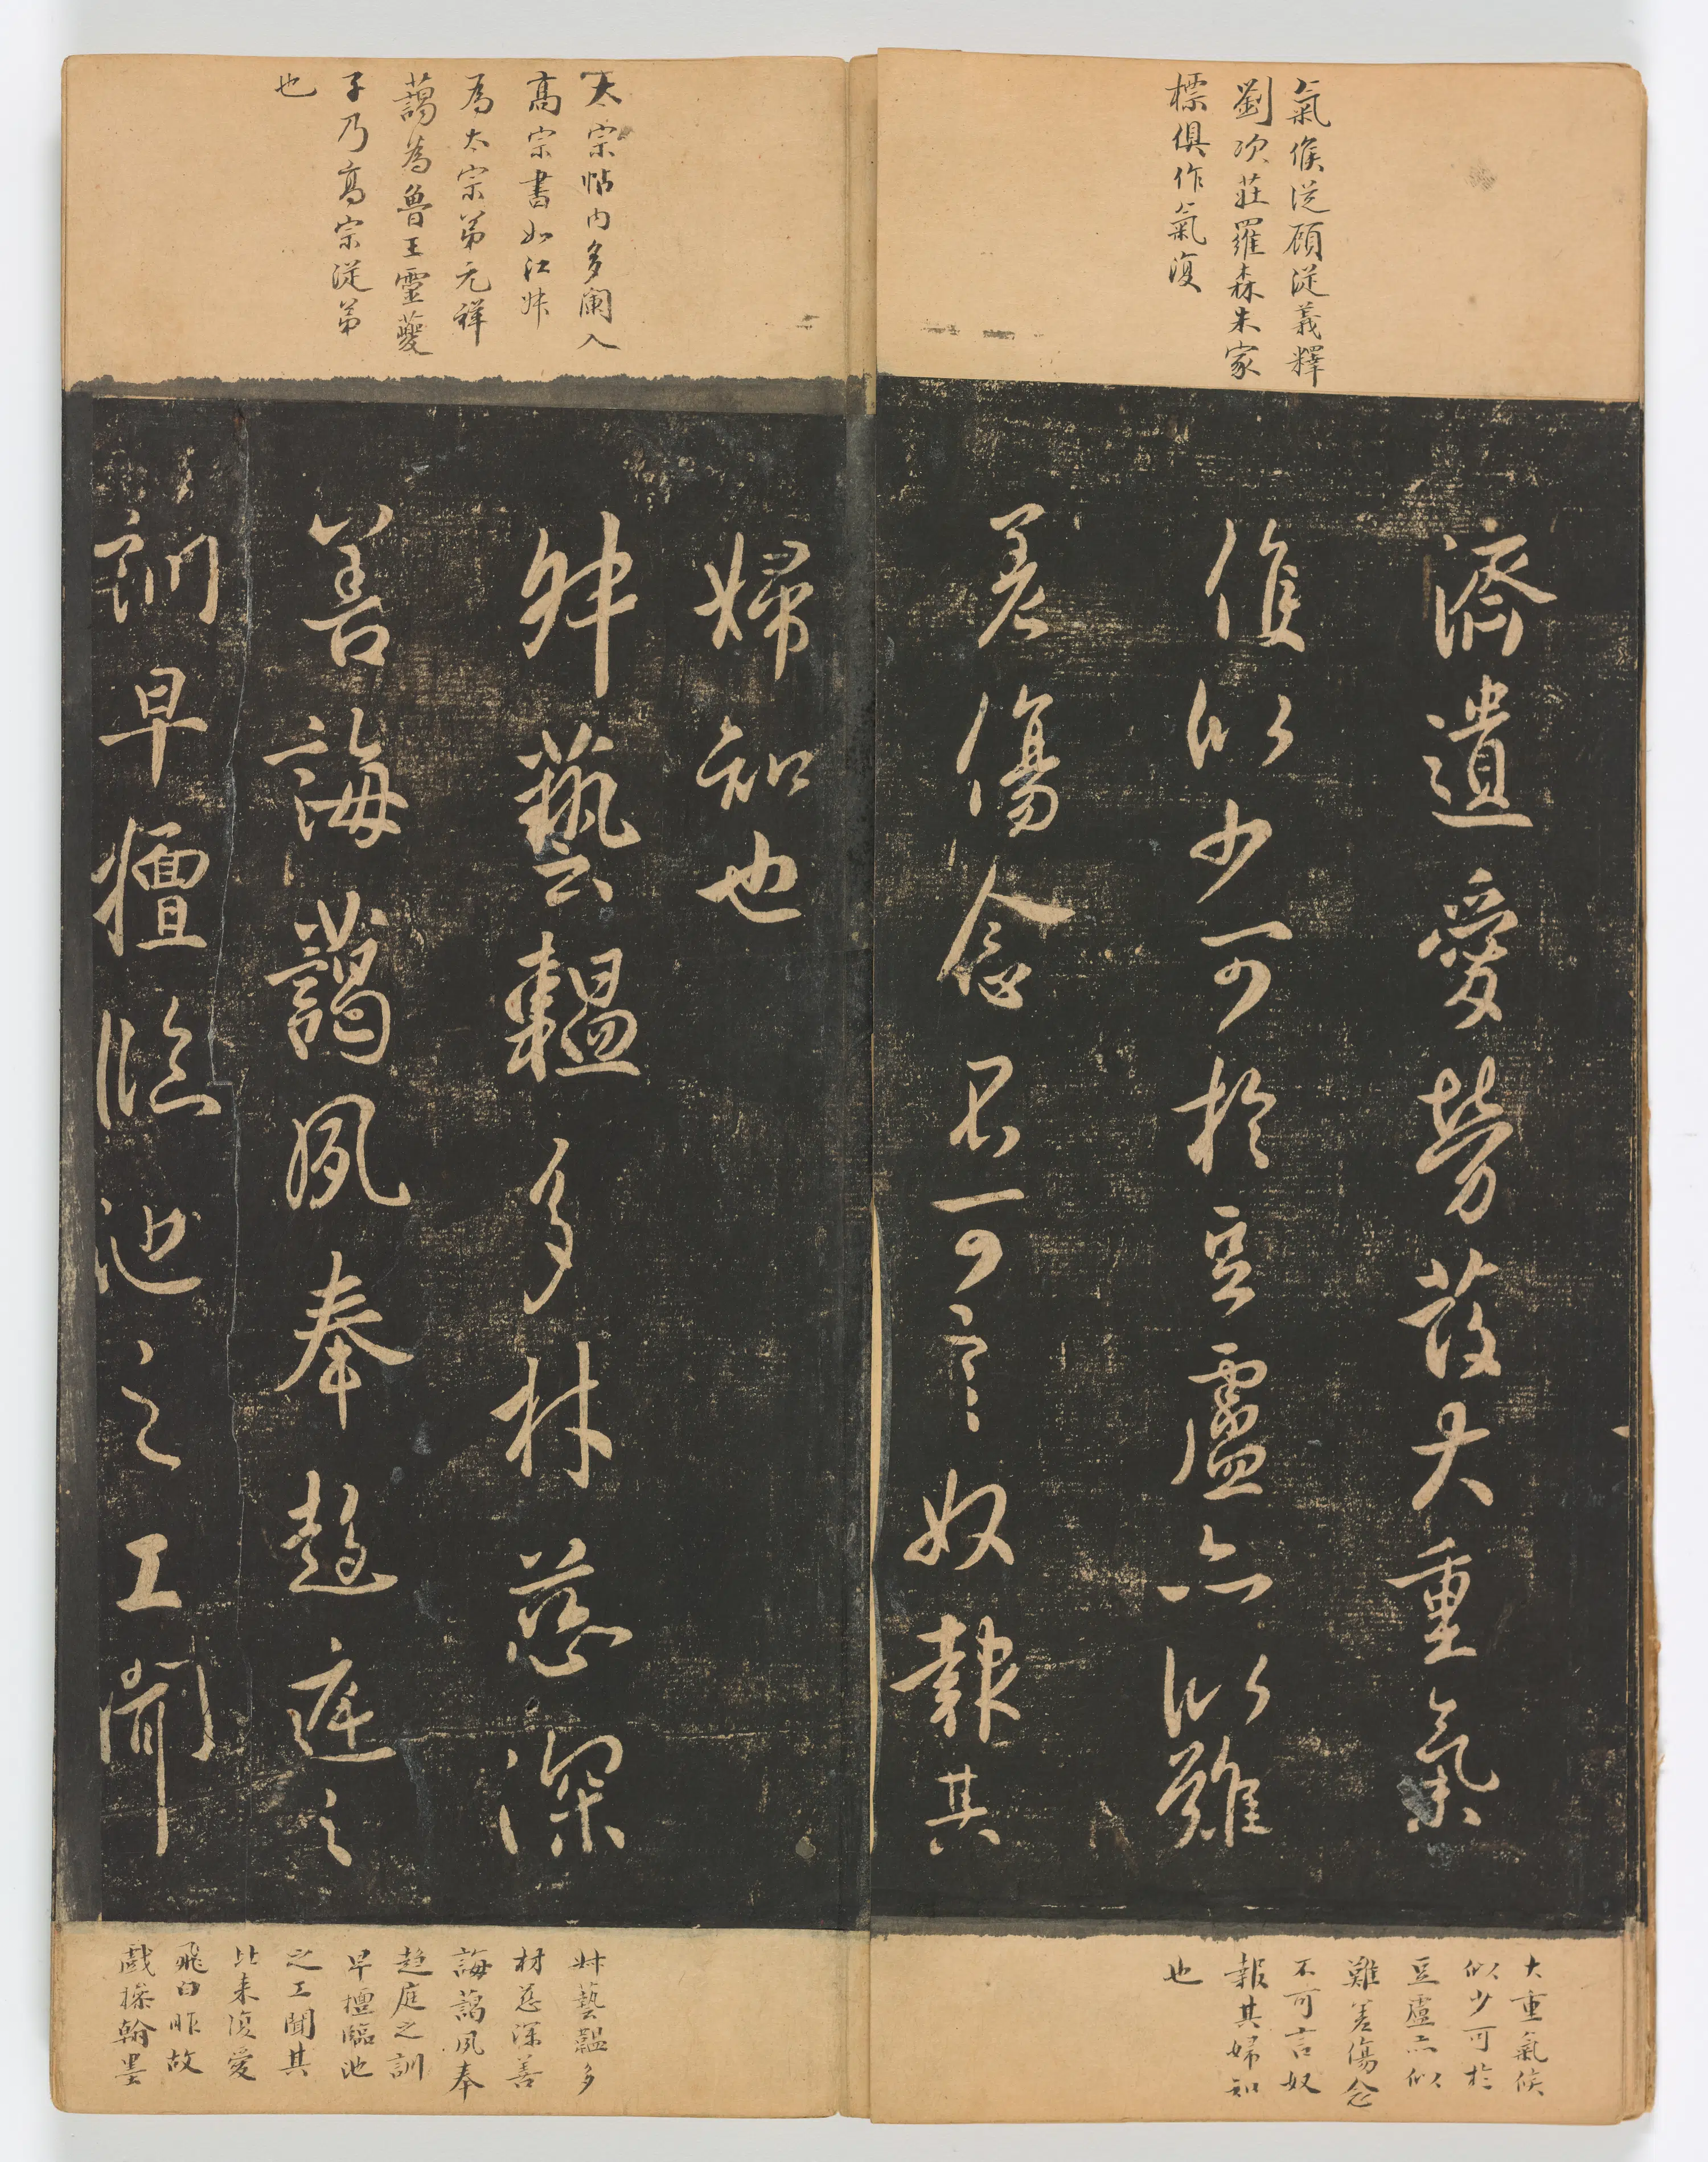 氣候從顧從義釋
劉次莊羅森朱家
標俱作氣復
濟遺愛勞茂大重氣
候似少可於豆盧亦似難
差傷念不可言奴報其
大重氣候
似少可於
豆盧亦似
難差傷念
不可言奴
報其婦知
也
太宗帖內多闌入
高宗書如江叔
為太宗弟元祥
藹為魯王靈夔
子乃高宗從弟
也
婦知也
叔藝韞多材慈深
善誨藹夙奉趨庭之
訓早擅臨池之工聞
叔藝韞多
材慈深善
誨藹夙奉
趨庭之訓
早擅臨池
之工聞其
比来復愛
飛白昨故
戲操翰墨